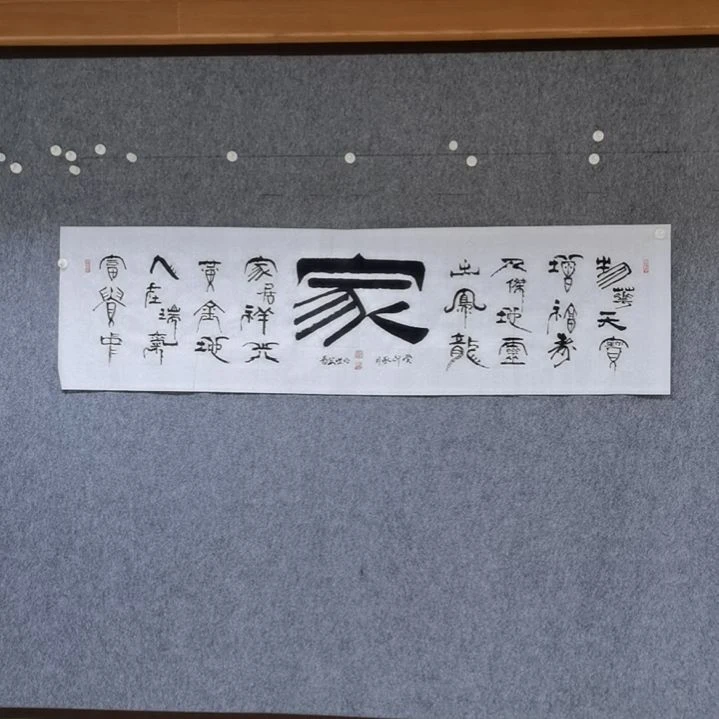 物華天寶
增福壽
人傑地靈
出鳳龍
家
家居祥光
黃金地
人在瑞氣
富貴中